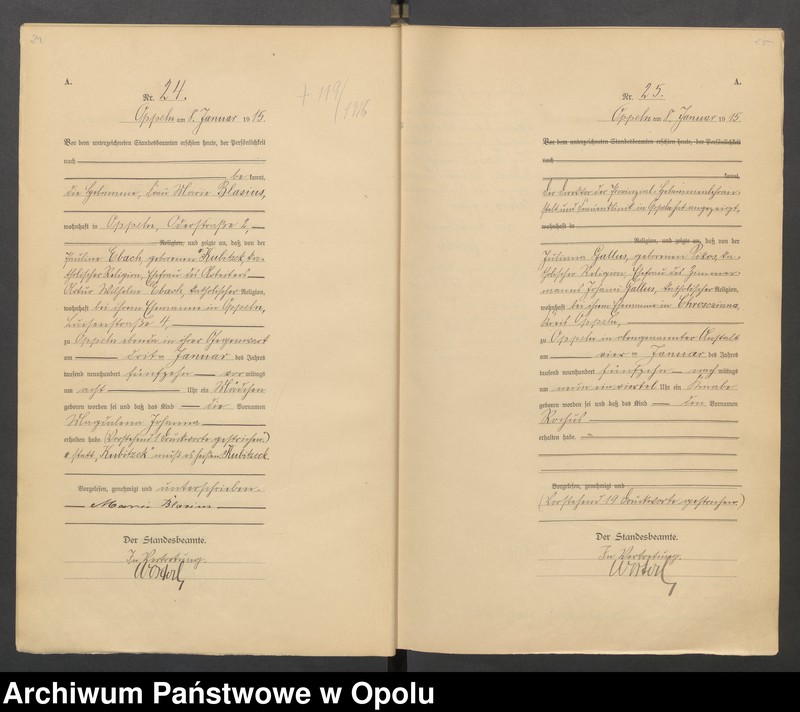 24
A.
Nr. 24.
+ 119/1916
Oppeln am 5. Januar 1915.
Vor dem unterzeichneten Standesbeamten erschien heute, der Persönlichkeit
nach
be kannt,
die Hebamme, Frau Marie Blasius,
wohnhaft in Oppeln, Oderstraße 2,
Religion, und zeigte an, daß von der
Pauline Ebach, geborenen Kubitzek, ka-
tholischer Religion, Ehefrau des Arbeiters
Artur Wilhelm Ebach, katholischer Religion,
wohnhaft bei ihrem Ehemanne in Oppeln,
zu Oppeln in ihrer Gegenwart
am dritten Januar des Jahres
tausend neunhundert fünfzehn vor mittags
um acht Uhr ein Mädchen
geboren worden sei und daß das Kind die Vornamen
Magdalena Johanna
erhalten habe. (Vorstehend 1 Druckworte gestrichen.)
statt "Kubitzeck" muß es heißen "Kubitzeck.
Vorgelesen, genehmigt und unterschrieben
Marie Blasius
Der Standesbeamte.
In Vertretung.
25
A.
Nr. 25.
Oppeln am 5. Januar 1915.
Vor dem unterzeichneten Standesbeamten erschien heute, der Persönlichkeit
nach
kannt,
Der Direktor der Provinzial-Hebammenlehran-
stalt und Frauenklinik in Oppeln hat angezeigt,
wohnhaft in
Religion, und zeigte an, daß von der
Julianna Gallus, geborenen ka-
tholischer Religion, Ehefrau des Zimmer-
manns Johann Gallus, katholischer Religion,
wohnhaft bei ihrem Ehemanne in Chrosczinna,
Kreis Oppeln,
zu Oppeln in obengenannter Anstalt
am vierten Januar des Jahres
tausend neunhundert fünfzehn nach mittags
um neun ein viertel Uhr ein Knabe
geboren worden sei und daß das Kind den Vornamen
Rochus
erhalten habe.
Vorgelesen, genehmigt und
(Vorstehend 19 Druckworte gestrichen.)
Der Standesbeamte.
In Vertretung.
Archiwum Państwowe w Opolu